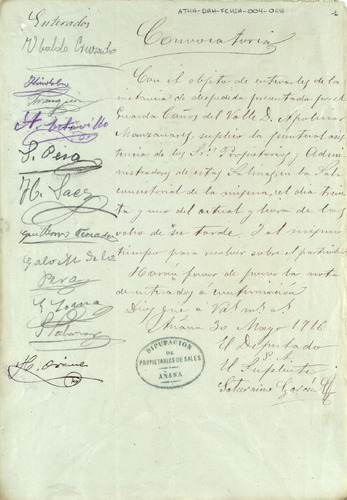 ATHA-DAH-FCHSA-004-068
Enterados
Ubaldo Cruzado
Convocatoria
Con el objeto de enterarles de la
instancia de despedida presentada por el
Guarda Caños del Valle D. Apolinar
Manzanares suplico la puntual asis
tencia de los Srs Propietarios y Admi
nistradores de estas Salinas, en la Sala
consistorial de la misma, el dia trein
ta y uno del actual y hora de las
de su tarde. Y al mismo
tiempo para resolver sobre el particular
Haran favor de poner la nota
de enterados a continuacion
Dios gue a Vds ms as
Añana 30 Mayo 1916
El Diputado
P. A.
El Suplente
Saturnino Garcia
S. Pera
H. Saez
Guillermo
Pera
DIPUTACION
DE
PROPIETARIOS DE SALES
AÑANA